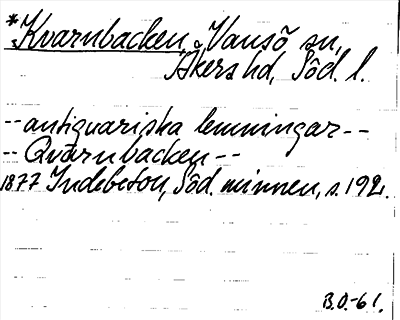 *Kvarnbacken, Vansö sn,
Åkers hd, Söd. l.
-- antiqvariska lemningar --
-- Qvarnbacken --
1877 Indebetou, Söd. minnen, s. 192.
B.O.-61.